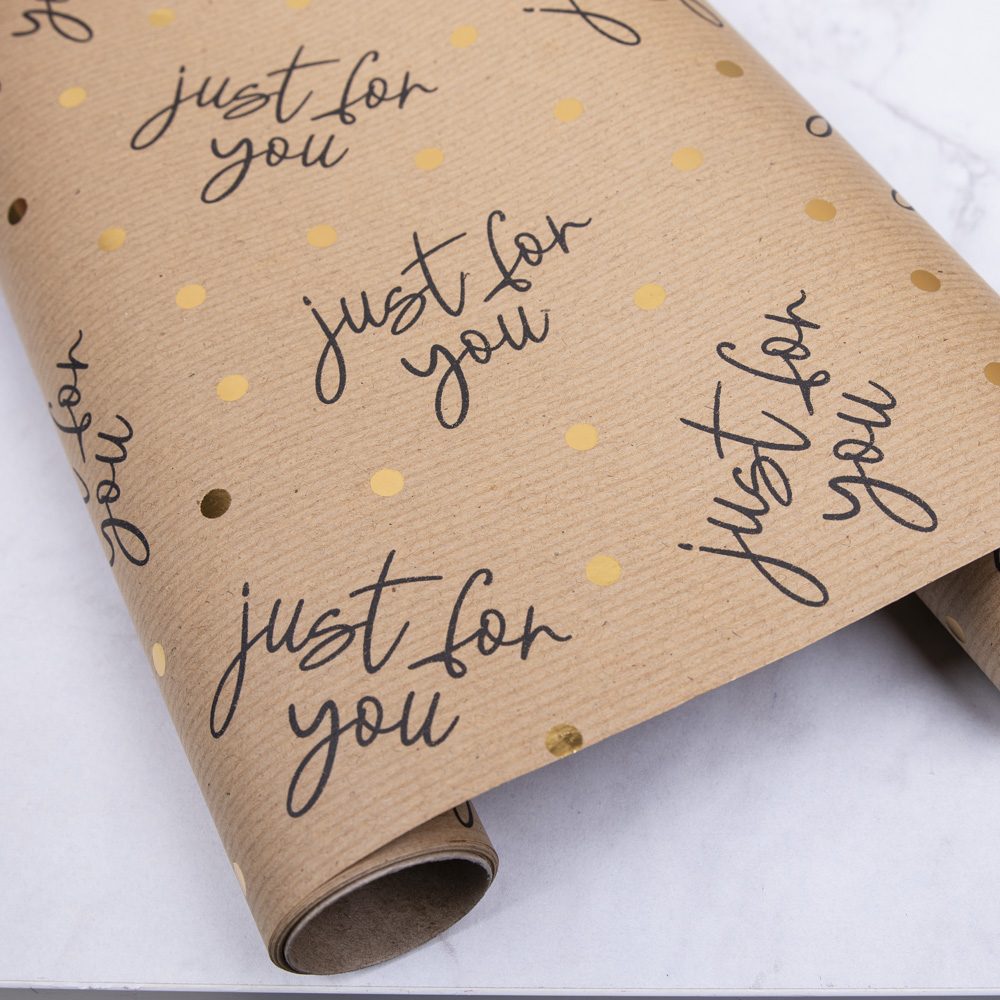 just for
you
just for
you
just for
you
for
you
just for
you